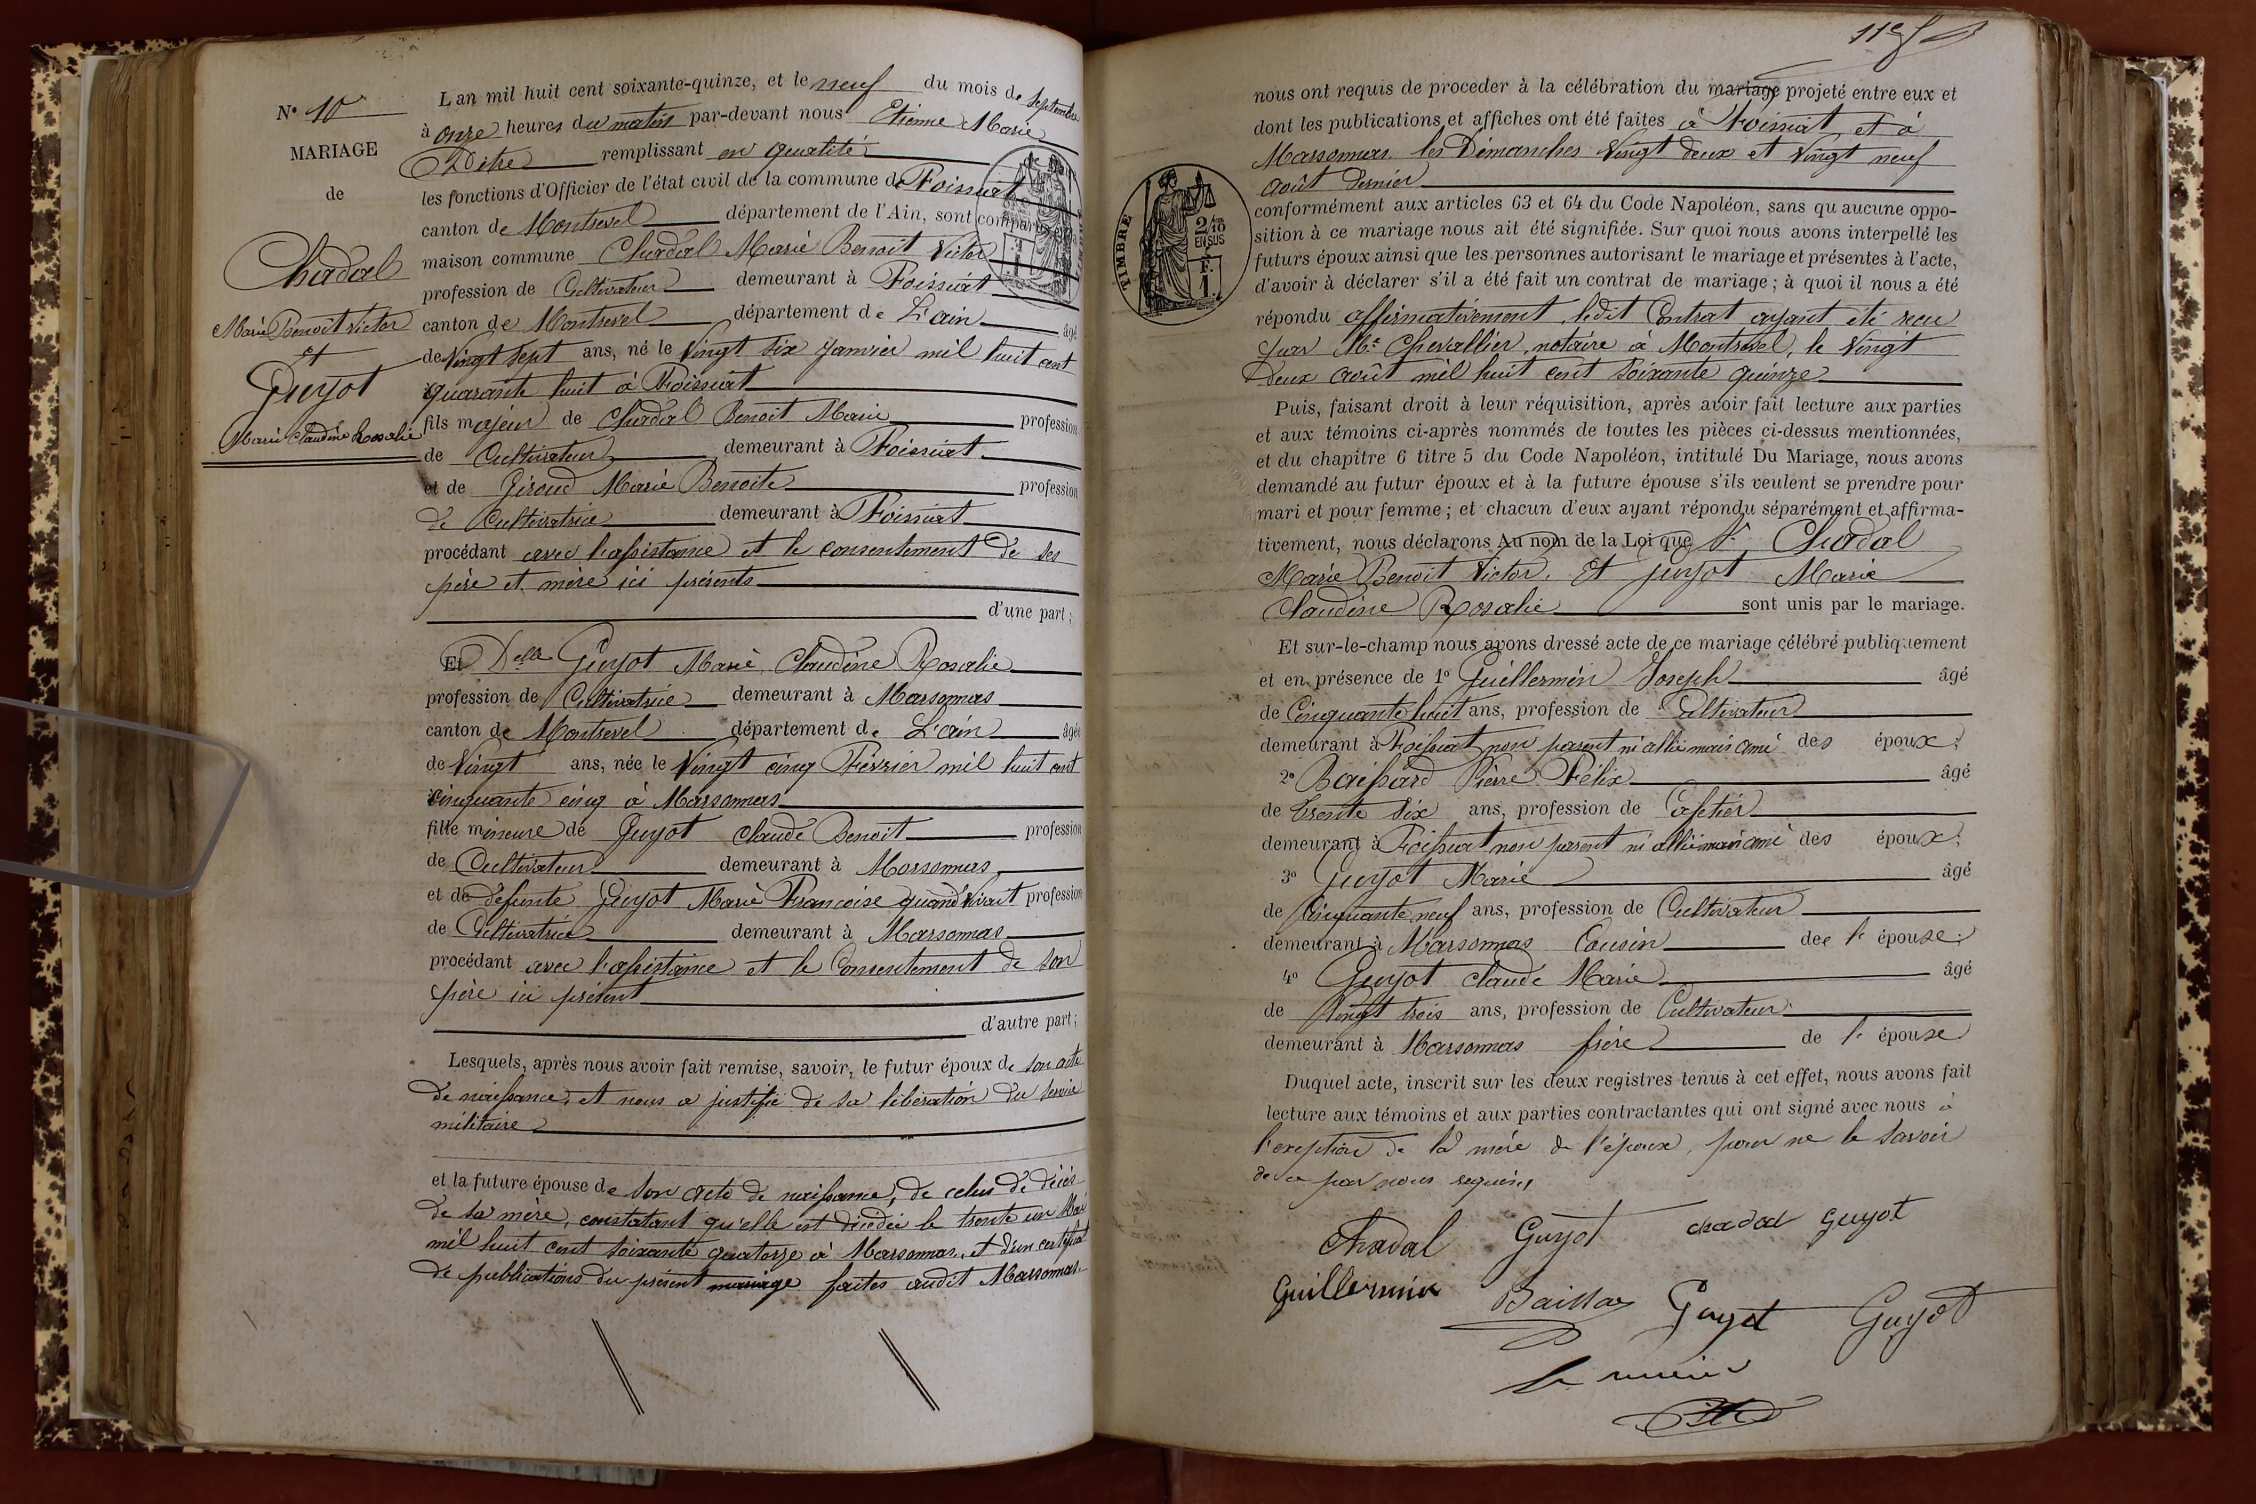 N° 10
MARIAGE
de
Chadal
Marie Benoit Victor
Et
Guyot
Marie Claudine Rosalie
L'an mil huit cent soixante-quinze, et le neuf du mois de Septembre
à onze heures du matin par-devant nous Etienne Marie
remplissant en qualité de
les fonctions d'Officier de l'état civil de la commune de Foissiat
canton de Montrevel département de l'Ain, sont comparus en la
maison commune Chadal Marie Benoit Victor
profession de Cultivateur demeurant à Foissiat
canton de Montrevel département de L'ain âgé
de Vingt sept ans, né le Vingt six Janvier mil huit cent
quarante huit à Foissiat
fils majeur de Chadal Benoit Marie profession
de Cultivateur demeurant à Foissiat
et de Giroud Marie Benoite profession
de Cultivatrice demeurant à Foissiat
procédant avec l'assistance et le consentement de ses
père et mère ici présents
d'une part;
Et Delle Guyot Marie Claudine Rosalie
profession de Cultivatrice demeurant à Marsonnas
canton de Montrevel département de L'ain âgée
de Vingt ans, née le Vingt cinq Février mil huit cent
cinquante cinq à Marsonnas
fille mineure de Guyot Claude Benoit profession
de Cultivateur demeurant à Marsonnas
et de défunte Guyot Marie Francoise quand vivait profession
de Cultivatrice demeurant à Marsonnas
procédant avec l'assistance et le Consentement de son
père ici présent
d'autre part;
Lesquels, après nous avoir fait remise, savoir, le futur époux de son acte
de naissance, et nous a justifié de sa libération du service
militaire
et la future épouse de son acte de naissance, de celui de décès
de sa mère, constatant qu'elle est décédée le trente un Mai
mil huit cent soixante quatorze à Marsonnas, et d'un certificat
de publications du présent mariage faites audit Marsonnas.
nous ont requis de proceder à la célébration du mariage projeté entre eux et
dont les publications et affiches ont été faites à Foissiat et à
Marsonnas les Dimanches Vingt deux et Vingt neuf
août dernier
conformément aux articles 63 et 64 du Code Napoléon, sans qu'aucune oppo-
sition à ce mariage nous ait été signifiée. Sur quoi nous avons interpellé les
futurs époux ainsi que les personnes autorisant le mariage et présentes à l'acte,
d'avoir à déclarer s'il a été fait un contrat de mariage; à quoi il nous a été
répondu affirmativement, ledit Contrat ayant été reçu
par Me Chevallier, notaire à Montrevel, le Vingt
Deux août mil huit cent soixante quinze
Puis, faisant droit à leur réquisition, après avoir fait lecture aux parties
et aux témoins ci-après nommés de toutes les pièces ci-dessus mentionnées,
et du chapitre 6 titre 5 du Code Napoléon, intitulé Du Mariage, nous avons
demandé au futur époux et à la future épouse s'ils veulent se prendre pour
mari et pour femme; et chacun d'eux ayant répondu séparément et affirma-
tivement, nous déclarons Au nom de la Loi que Sr Chadal
Marie Benoit Victor. Et Guyot Marie
Claudine Rosalie sont unis par le mariage.
Et sur-le-champ nous avons dressé acte de ce mariage célébré publiquement
et en présence de 1° Guillermin Joseph âgé
de Cinquante huit ans, profession de Cultivateur
demeurant à Foissiat non parent ni allié mais ami des époux;
2° Baissard Pierre Félix âgé
de trente six ans, profession de Cafetier
demeurant à Foissiat non parent ni allié mais ami des époux;
3° Guyot Marie âgé
de Cinquante neuf ans, profession de Cultivateur
demeurant à Marsonnas Cousin de l' épouse;
4° Guyot Claude Marie âgé
de Vingt trois ans, profession de Cultivateur
demeurant à Marsonnas frère de l' épouse
Duquel acte, inscrit sur les deux registres tenus à cet effet, nous avons fait
lecture aux témoins et aux parties contractantes qui ont signé avec nous à
l'exeption de la mère de l'époux, pour ne le savoir
de ce par nous requis,
TIMBRE
2/10
EN SUS
F.
1.
Chadal Guyot chadal Guyot
Guillermin Guyot Guyot
Le maire